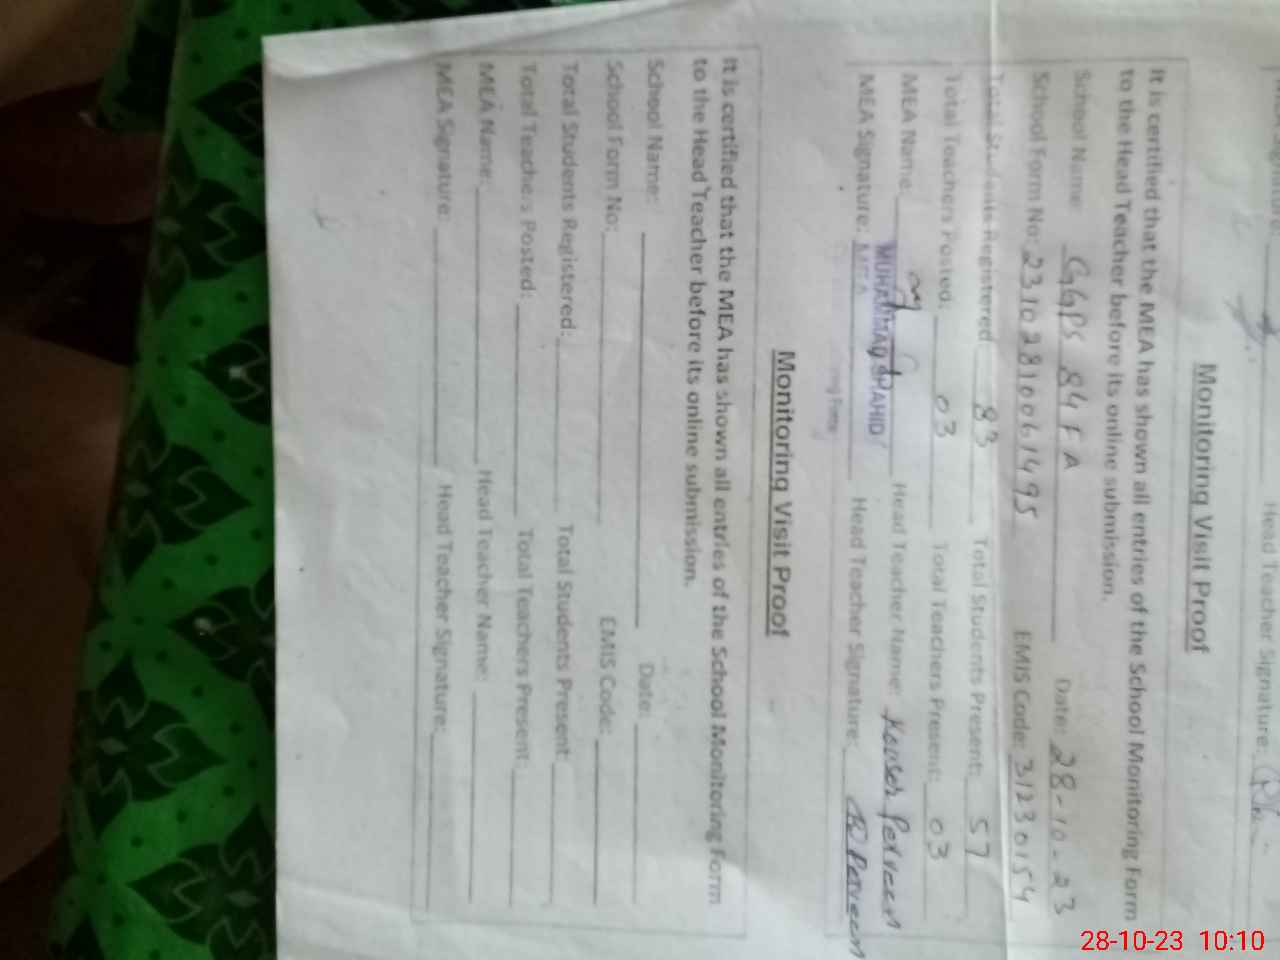 Head Teacher Signature:
Monitoring Visit Proof
It is certified that the MEA has shown all entries of the School Monitoring Form
to the Head Teacher before its online submission.
School Name: GGPS 84 FA Date: 28-10-23
School Form No: 23102810061495 EMIS Code: 31230154
Total Students Registered 83 Total Students Present: 57
Total Teachers Posted: 03 Total Teachers Present: 03
MEA Name: MUHAMMAD SHAHID Head Teacher Name: Kausar Perveen
MEA Signature: MEA Head Teacher Signature: Perveen
Monitoring Visit Proof
It is certified that the MEA has shown all entries of the School Monitoring Form
to the Head Teacher before its online submission.
School Name: Date:
School Form No: EMIS Code:
Total Students Registered: Total Students Present:
Total Teachers Posted: Total Teachers Present:
MEA Name: Head Teacher Name:
MEA Signature: Head Teacher Signature:
28-10-23 10:10